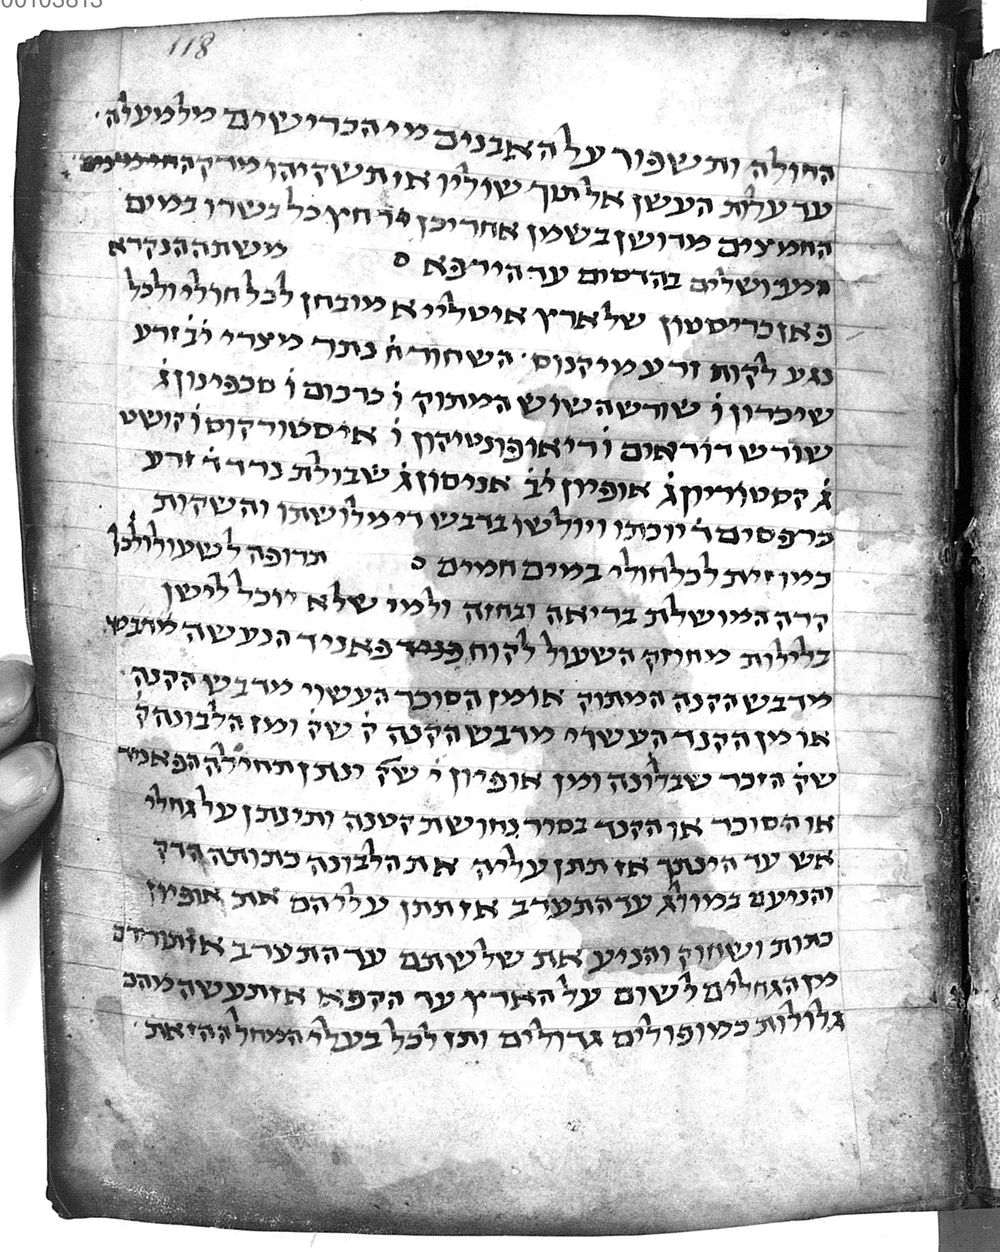 00103813
118
החולה ותשפור על האבנים מי הכרישים מלמעלה
עד עלות העשן אל תוך שוליו או תשקיהו מרק
החמצים מדושן בשמן אחרי כן רחץ כל בשרו במים
בהדסום עד הירפא ס משתה הנקרא
של ארץ איטליא מובחן לכל חולי ולכל
נגע לקוח זרע מויקנוס השחור ח נתר מצרי יב זרע
שיכרון ו שורש השוש המתוק ו כרכום ו סכפינון ג
שורש דודאים ו דיאופונטיקון ו איסטורקוס ו קושט
ג קסטוריון ג אופיון יב אניסון ג שבולת נרד ד זרע
כרפסים ד יוכתו ויולשו בדבש די מלושתו והשקות
כמו זית לכל חולי במים חמים ס תרופה לשעול ולכל
קרה המושלת בריאה ובחזה ולמי שלא יוכל לישן
בלילות מחוזק השעול לקוח פאניד הנעשה
מדבש הקנה המתוק או מן הסוכר העשוי מדבש הקנה
או מן הקנד העשוי מדבש הקנה ק שק ומן הלבונה ק
שק הזכר שבלבונה ומן אופיון י שק ינתן תחילה הפאניד
או הסוכר או הקנד בסיר נחושת קטנה ותינתן על גחלי
אש עד הינתך אז תתן עליה את הלבונה כתותה הדק
והניעם עד התערב אז תתן עליהם את אופיון
כתות ושחוק והניע את שלשתם עד התערב אז
מן הגחלים לשום על הארץ עד הקפא אז תעשה מהם
גלולות כמו פולים גדולים ותן לכל בעלי המחלה הזאת